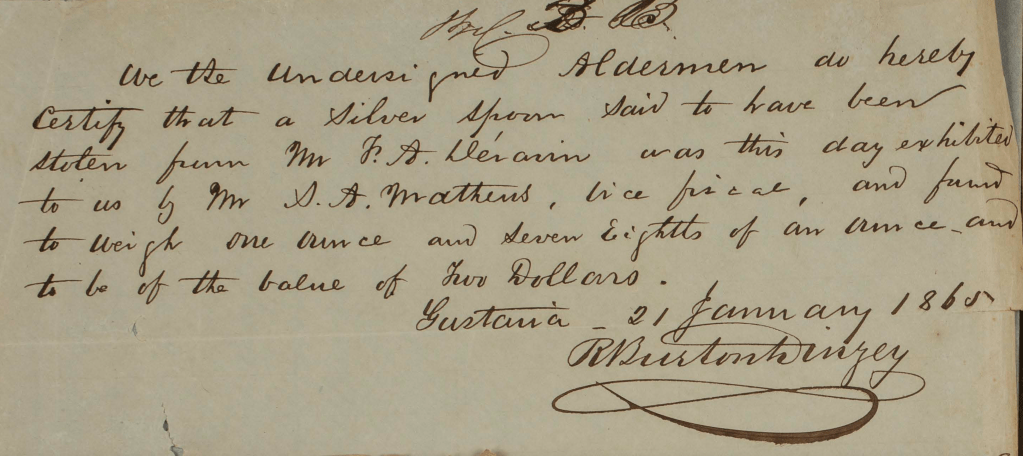 We the Undersigned Aldermen do hereby
Certify that a Silver Spoon said to have been
stolen from Mr F. A. Déravin was this day exhibited
to us by Mr S. A. Mathews, vice fiscal, and found
to weigh one ounce and seven Eightts of an ounce - and
to be of the value of Two Dollars.
Gustavia - 21 January 1865
RBurton Dinzey